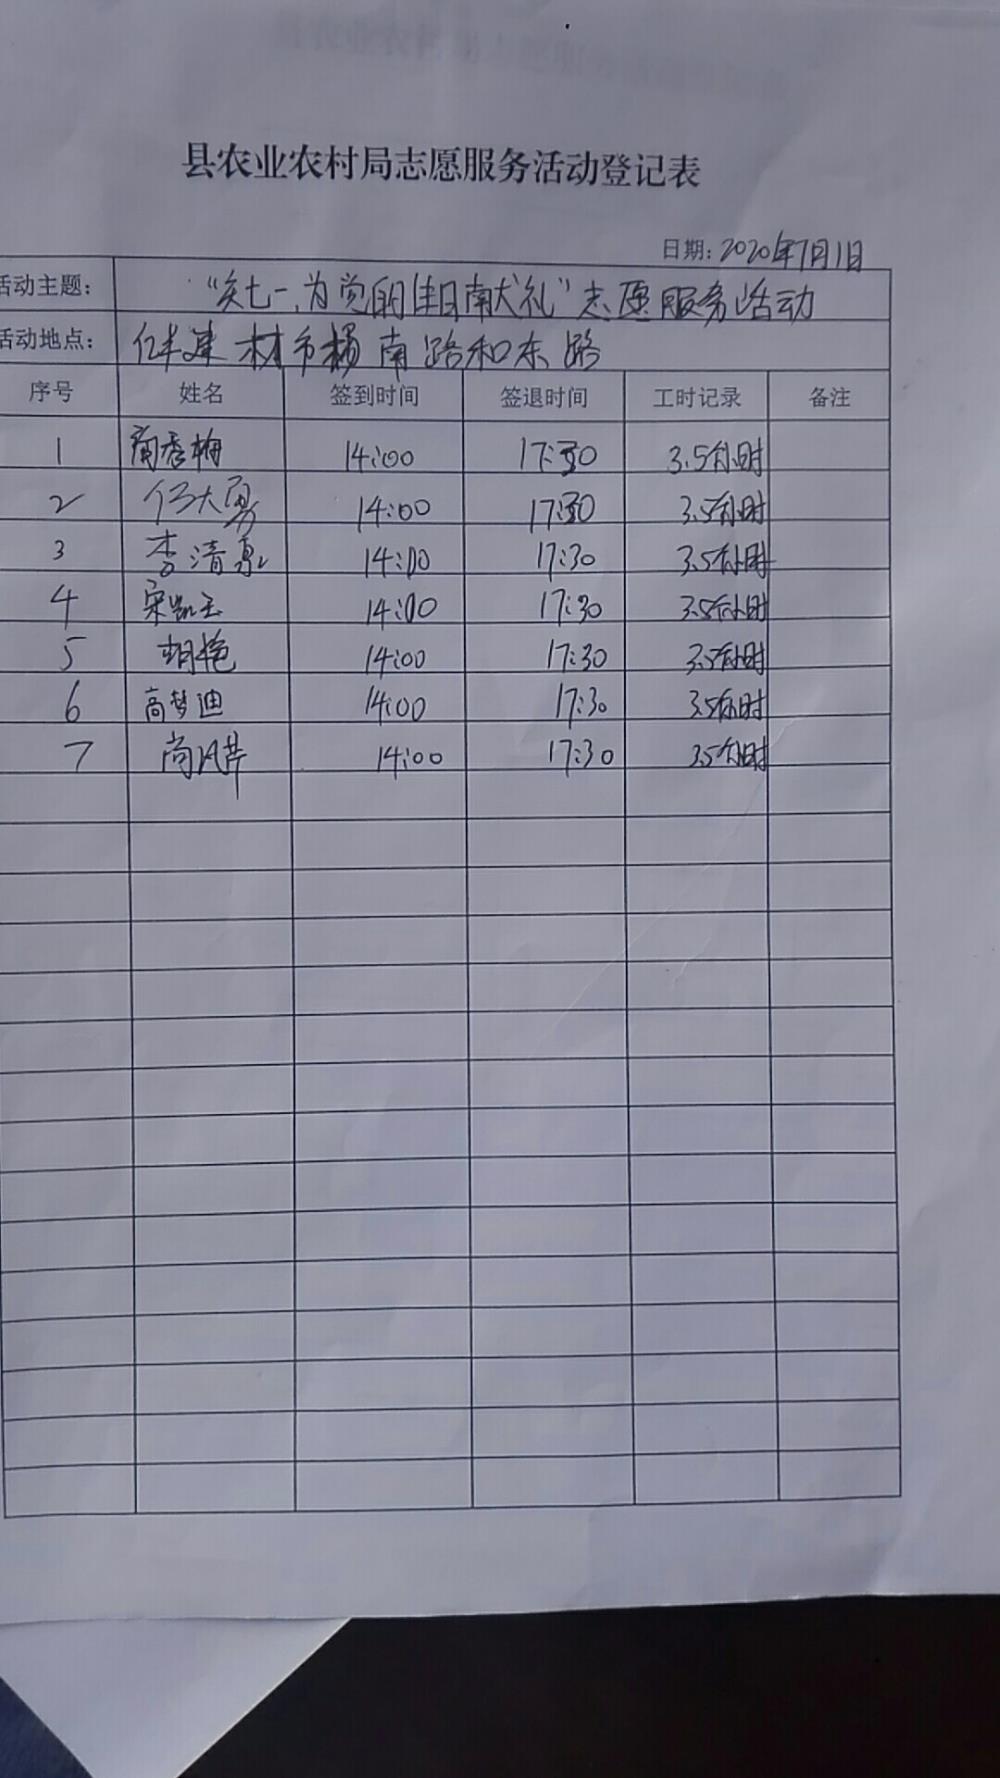 县农业农村局志愿服务活动登记表
日期: 2020年7月1日
活动主题: "七一,为党的生日献礼"志愿服务活动
活动地点: 建材市场南路和东路
序号 姓名 签到时间 签退时间 工时记录 备注
1 秀梅 14:00 17:30 3.5小时
2 任大勇 14:00 17:30 3.5小时
3 李清泉 14:00 17:30 3.5小时
4 宋凯玉 14:00 17:30 3.5小时
5 胡艳 14:00 17:30 3.5小时
6 高梦迪 14:00 17:30 3.5小时
7 尚风芹 14:00 17:30 3.5小时